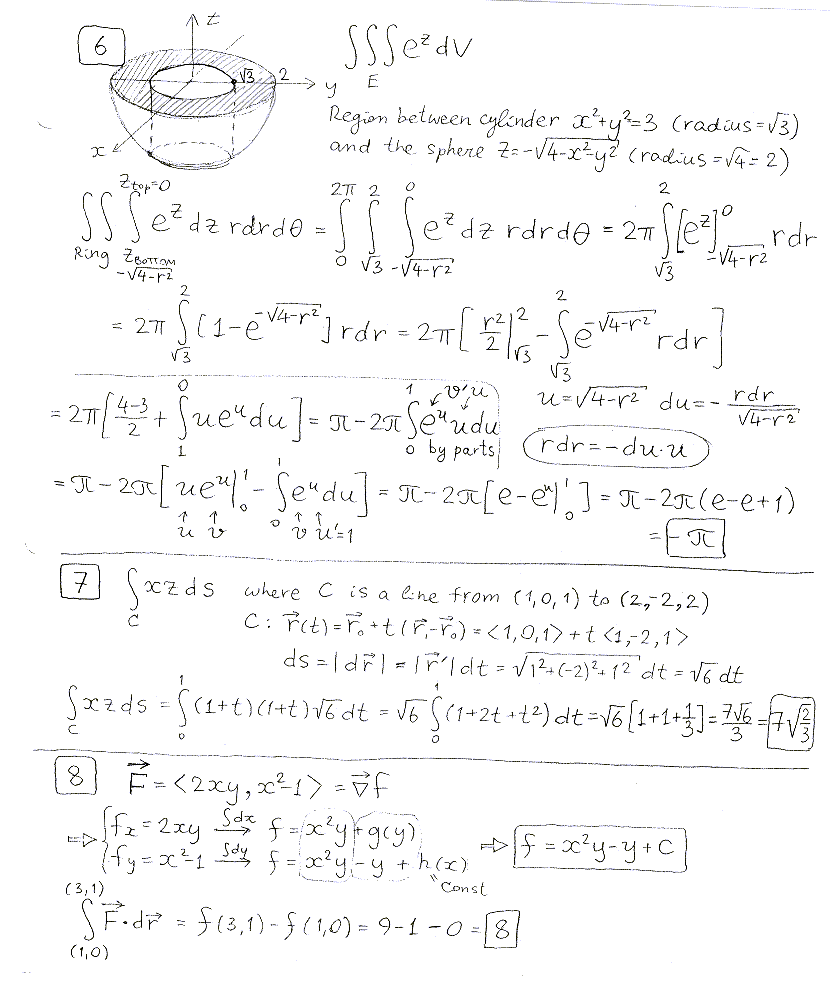 6
t
√3 2 y
x
∫∫∫ e^z dV
E
Region between cylinder x²+y²=3 (radius=√3)
and the sphere z=-√(4-x²-y²) (radius=√4=2)
∫∫_Ring ∫_{Z_BOTTOM -√(4-r²)}^{Z_top=0} e^z dz r dr dθ = ∫_0^{2π} ∫_{√3}^2 ∫_{-√(4-r²)}^0 e^z dz r dr dθ = 2π ∫_{√3}^2 [e^z]_{-√(4-r²)}^0 r dr
= 2π ∫_{√3}^2 [1-e^{-√(4-r²)}] r dr = 2π [ r²/2 |_{√3}^2 - ∫_{√3}^2 e^{-√(4-r²)} r dr ]
= 2π [ (4-3)/2 + ∫_1^0 u e^u du ] = π - 2π ∫_0^1 e^u u du v'u by parts
u = √(4-r²) du = - r dr/√(4-r²)
r dr = -du·u
= π - 2π [ u e^u |_0^1 - ∫_0^1 e^u du ] = π - 2π [e - e^u |_0^1 ] = π - 2π (e-e+1)
↑ ↑ ↑ ↑
u v v u'=1
= -π
7 ∫_C xz ds where C is a line from (1,0,1) to (2,-2,2)
C: r⃗(t) = r⃗₀ + t(r⃗₁-r⃗₀) = <1,0,1> + t<1,-2,1>
ds = |dr⃗| = |r⃗'| dt = √(1²+(-2)²+1²) dt = √6 dt
∫_C xz ds = ∫_0^1 (1+t)(1+t)√6 dt = √6 ∫_0^1 (1+2t+t²) dt = √6 [1+1+1/3] = 7√6/3 = 7√(2/3)
8 F⃗ = <2xy, x²-1> = ∇⃗f
⇒ { f_x = 2xy ∫dx→ f = x²y + g(y)
f_y = x²-1 ∫dy→ f = x²y - y + h(x)
" Const
⇒ f = x²y - y + C
∫_{(1,0)}^{(3,1)} F⃗·dr⃗ = f(3,1) - f(1,0) = 9-1-0 = 8